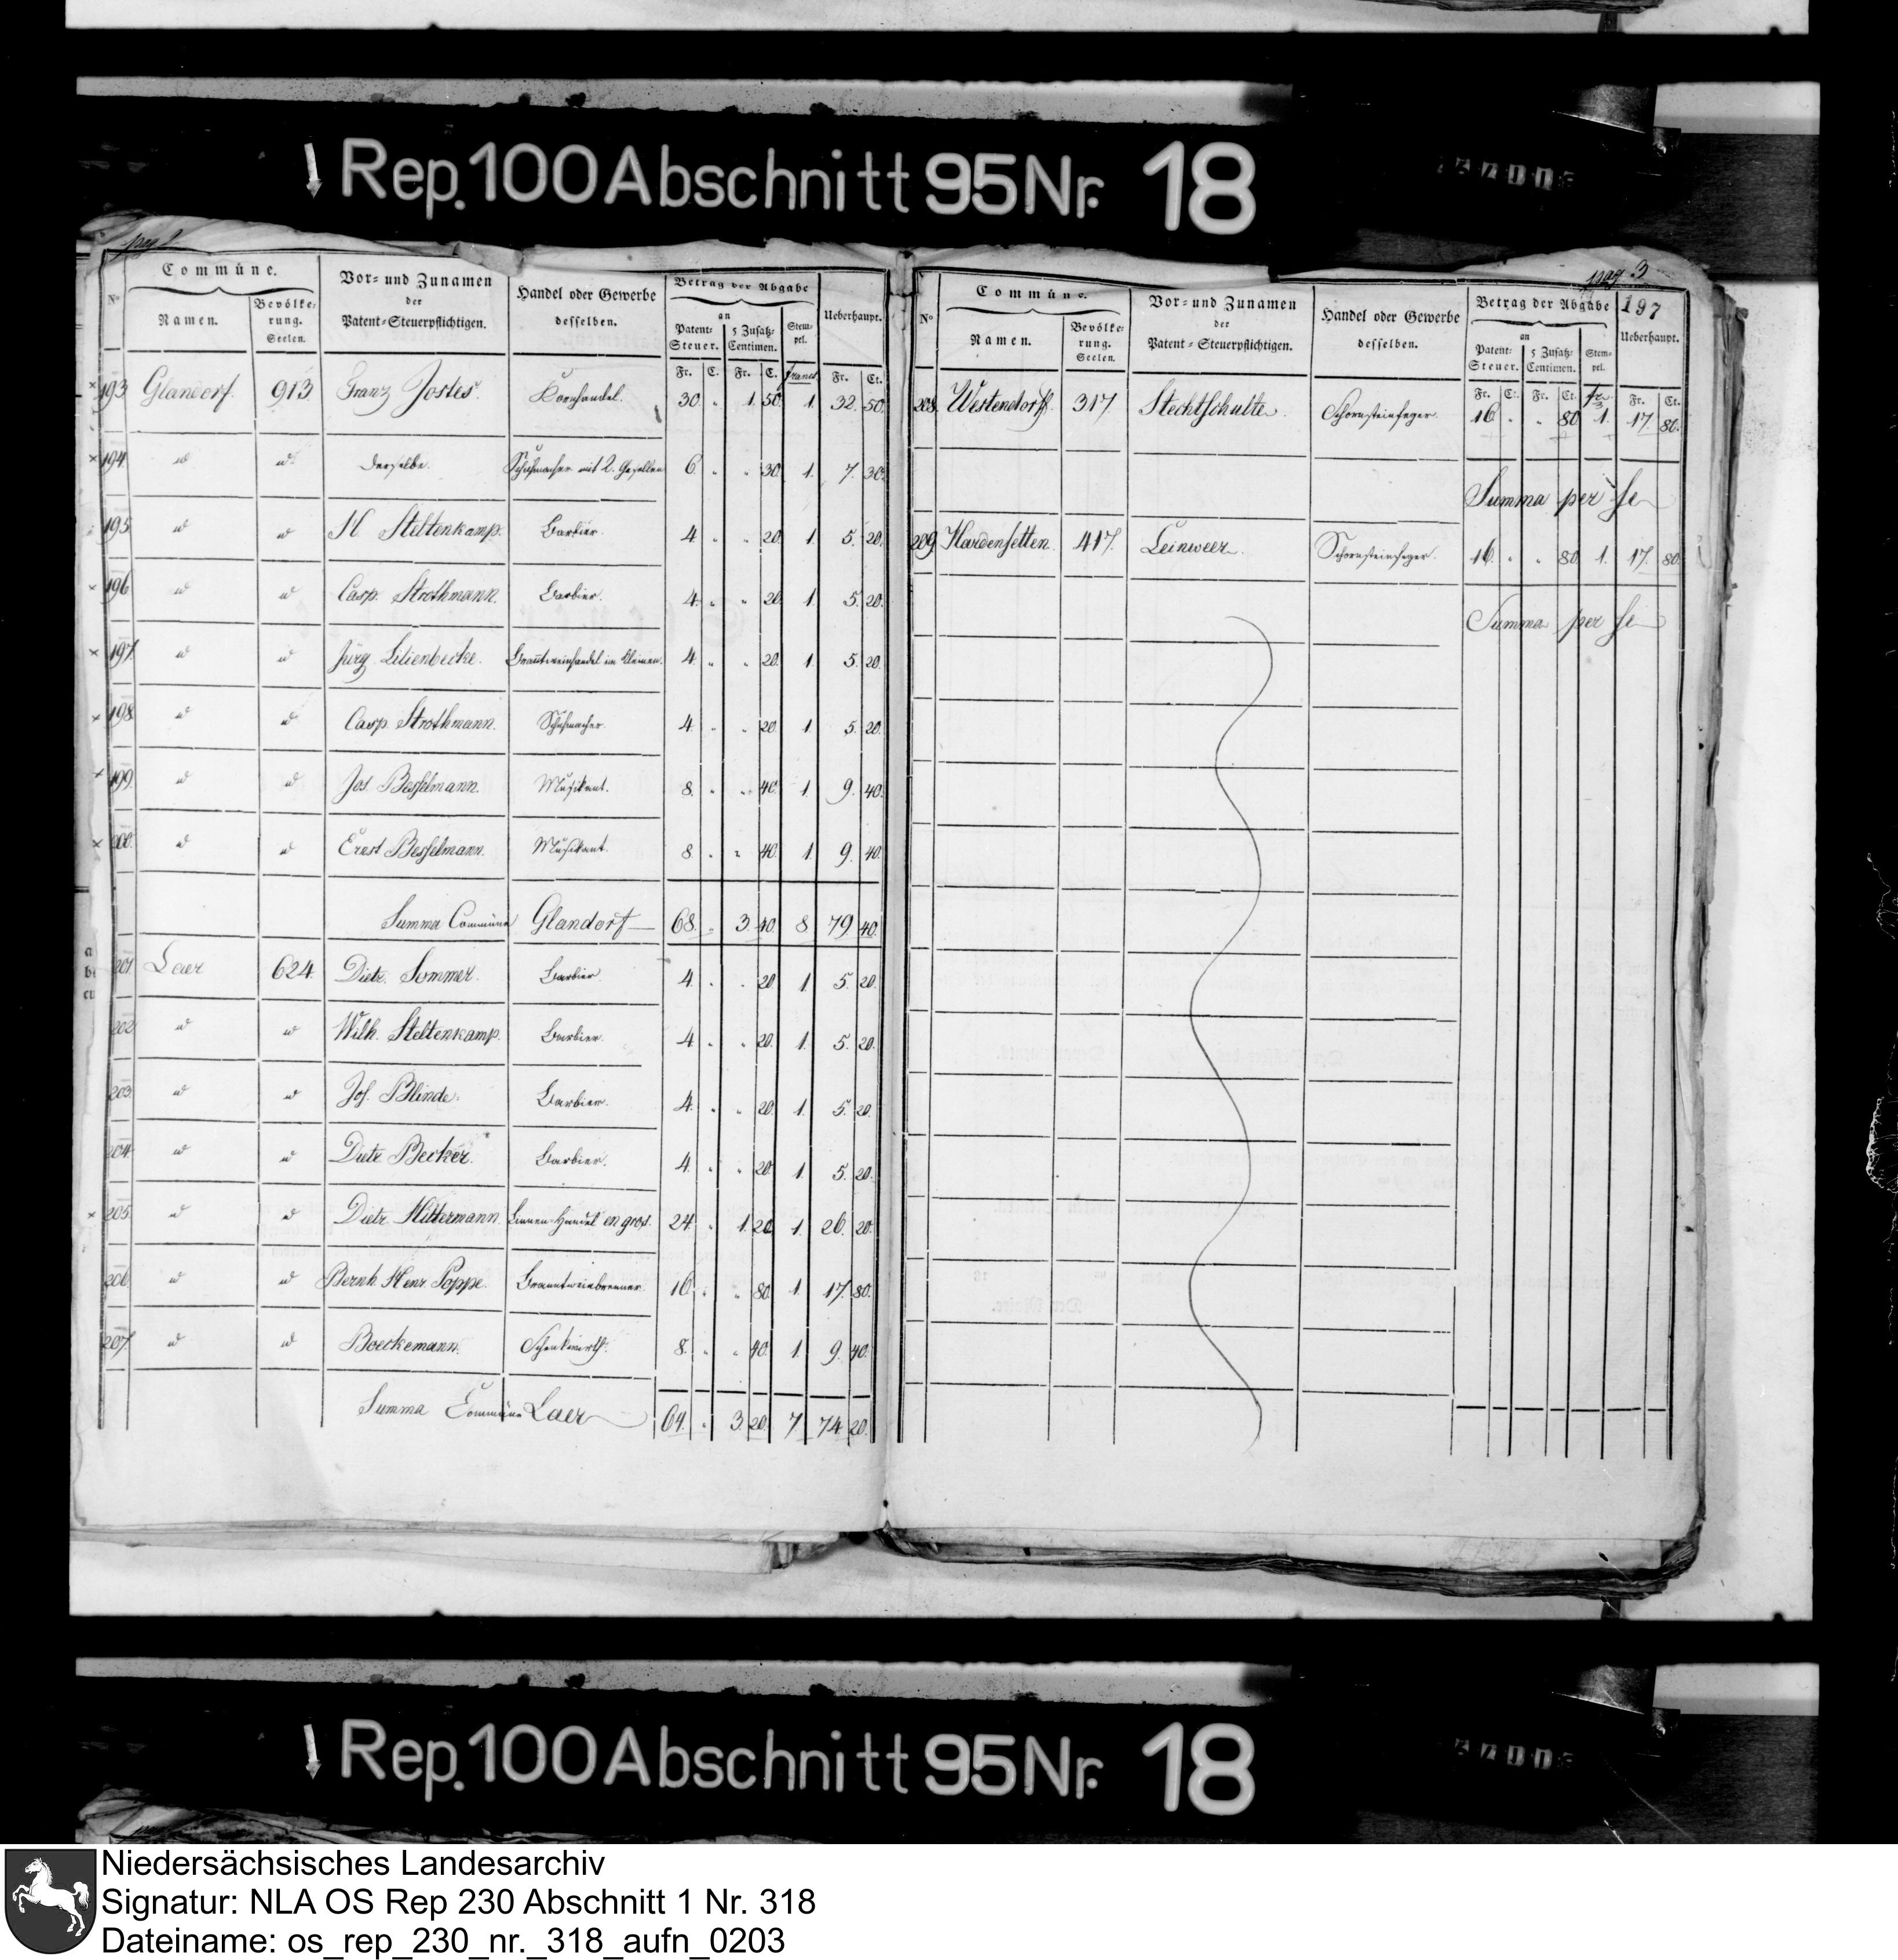 Rep. 100 Abschnitt 95 Nr. 18
pag 2
No Commüne. Vor= und Zunamen der Patent=Steuerpflichtigen. Handel oder Gewerbe desselben. Betrag der Abgabe an Ueberhaupt.
Namen. Bevölke=rung. Seelen. Patent=Steuer. 5 Zusatz=Centimen. Stem=pel.
Fr. C. Fr. C. Francs Fr. Ct.
193 Glandorf. 913 Franz Jostes. Kornhandel. 30 " 1 50 1. 32. 50.
194 " " Derselbe. Schuhmacher mit 2. Gesellen 6 " " 30 1. 7. 30.
195 " " H. Steltenkamp. Barbier. 4 " " 20 1. 5. 20.
196 " " Casp. Strothmann. Barbier. 4 " " 20 1. 5. 20.
197 " " Jürg. Lilienbecke. Brantweinhandel im kleinen. 4 " " 20 1. 5. 20.
198 " " Casp. Strothmann. Schuhmacher. 4 " " 20 1. 5. 20.
199 " " Jos. Besselmann. Musikant. 8. " " 40 1. 9. 40.
200 " " Ernst Besselmann. Musikant. 8 " " 40 1. 9. 40.
Summa Commüne Glandorf 68. " 3 40 8 79 40.
201 Laer 624 Dietr. Sommer. Barbier 4 " " 20 1 5. 20.
202 " " Wilh. Steltenkamp. Barbier. 4 " " 20. 1. 5. 20.
203 " " Jos. Blinde. Barbier. 4. " " 20. 1. 5. 20.
204 " " Dietr. Becker. Barbier. 4. " " 20 1 5. 20.
205 " " Dietr. Hiltermann. Linnen-Handel en gros. 24 " 1. 20 1. 26. 20.
206 " " Bernh. Henr. Poppe. Branntweinbrenner. 16 " " 80 1 17. 80.
207 " " Boeckemann. Schenkwirth. 8. " " 40. 1. 9. 40.
Summa Commüne Laer 64. " 3 20. 7 74 20.
pag. 3
197
No Commüne. Vor= und Zunamen der Patent=Steuerpflichtigen. Handel oder Gewerbe desselben. Betrag der Abgabe an Ueberhaupt.
Namen. Bevölke=rung. Seelen. Patent=Steuer. 5 Zusatz=Centimen. Stem=pel.
Fr. Ct. Fr. Ct. fr. Fr. Ct.
208. Westendorf. 317 Stechtschulte. Schornsteinfeger. 16 " " 80 1. 17. 80.
Summa per se
209 Hardensetten. 417. Leinweer. Schornsteinfeger. 16. " " 80. 1. 17. 80.
Summa per se
Rep. 100 Abschnitt 95 Nr. 18
Niedersächsisches Landesarchiv
Signatur: NLA OS Rep 230 Abschnitt 1 Nr. 318
Dateiname: os_rep_230_nr._318_aufn_0203